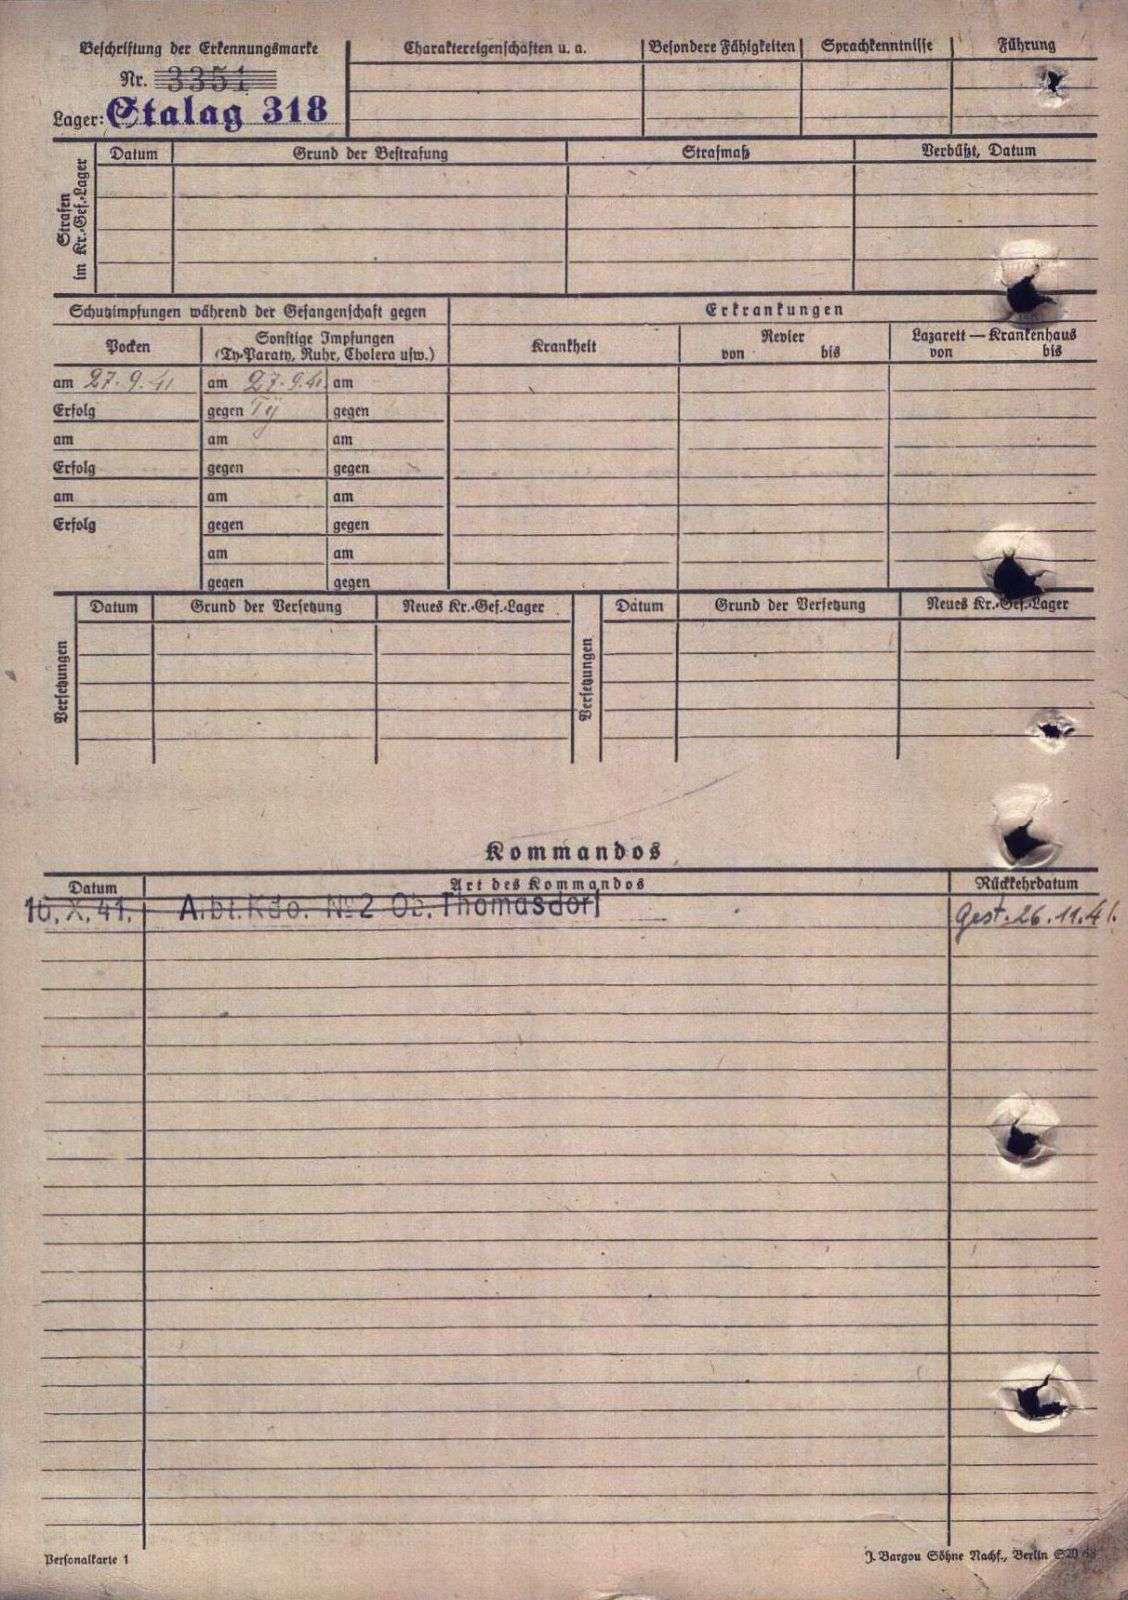 Beschriftung der Erkennungsmarke
Nr. 3351
Lager: Stalag 318
Charaktereigenschaften u. a.
Besondere Fähigkeiten
Sprachkenntnisse
Führung
Strafen
im Kr.-Gef.-Lager
Datum
Grund der Bestrafung
Strafmaß
Verbüßt, Datum
Schutzimpfungen während der Gefangenschaft gegen
Erkrankungen
Pocken
Sonstige Impfungen
(Ty-Paraty, Ruhr, Cholera usw.)
Krankheit
Revier
von bis
Lazarett — Krankenhaus
von bis
am 27.9.41 am 27.9.41 am
Erfolg gegen Ty gegen
am am am
Erfolg gegen gegen
am am am
Erfolg gegen gegen
am am
gegen gegen
Versetzungen
Datum
Grund der Versetzung
Neues Kr.-Gef.-Lager
Versetzungen
Datum
Grund der Versetzung
Neues Kr.-Gef.-Lager
Kommandos
Datum
Art des Kommandos
Rückkehrdatum
16. X. 41. Arbt. Kdo. No 2 Ob. Thomasdorf gest. 26.11.41.
Personalkarte 1
J. Bargou Söhne Nachf., Berlin SW